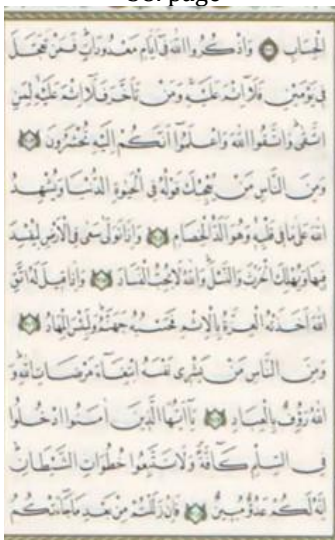 page
الْحِسَابِ وَاذْكُرُوا اللهَ فِي أَيَّامٍ مَعْدُودَاتٍ فَمَنْ تَعَجَّلَ
فِي يَوْمَيْنِ فَلَا إِثْمَ عَلَيْهِ وَمَنْ تَأَخَّرَ فَلَا إِثْمَ عَلَيْهِ لِمَنِ
اتَّقَى وَاتَّقُوا اللهَ وَاعْلَمُوا أَنَّكُمْ إِلَيْهِ تُحْشَرُونَ
وَمِنَ النَّاسِ مَنْ يُعْجِبُكَ قَوْلُهُ فِي الْحَيٰوةِ الدُّنْيَا وَيُشْهِدُ
اللهَ عَلَى مَا فِي قَلْبِهِ وَهُوَ أَلَدُّ الْخِصَامِ وَإِذَا تَوَلَّى سَعَى فِي الْأَرْضِ لِيُفْسِدَ
فِيهَا وَيُهْلِكَ الْحَرْثَ وَالنَّسْلَ وَاللهُ لَا يُحِبُّ الْفَسَادَ وَإِذَا قِيلَ لَهُ اتَّقِ
اللهَ أَخَذَتْهُ الْعِزَّةُ بِالْإِثْمِ فَحَسْبُهُ جَهَنَّمُ وَلَبِئْسَ الْمِهَادُ
وَمِنَ النَّاسِ مَنْ يَشْرِي نَفْسَهُ ابْتِغَاءَ مَرْضَاتِ اللهِ وَ
اللهُ رَؤُفٌ بِالْعِبَادِ يَا أَيُّهَا الَّذِينَ آمَنُوا ادْخُلُوا
فِي السِّلْمِ كَافَّةً وَلَا تَتَّبِعُوا خُطُوَاتِ الشَّيْطَانِ
إِنَّهُ لَكُمْ عَدُوٌّ مُبِينٌ فَإِنْ زَلَلْتُمْ مِنْ بَعْدِ مَا جَاءَتْكُمُ